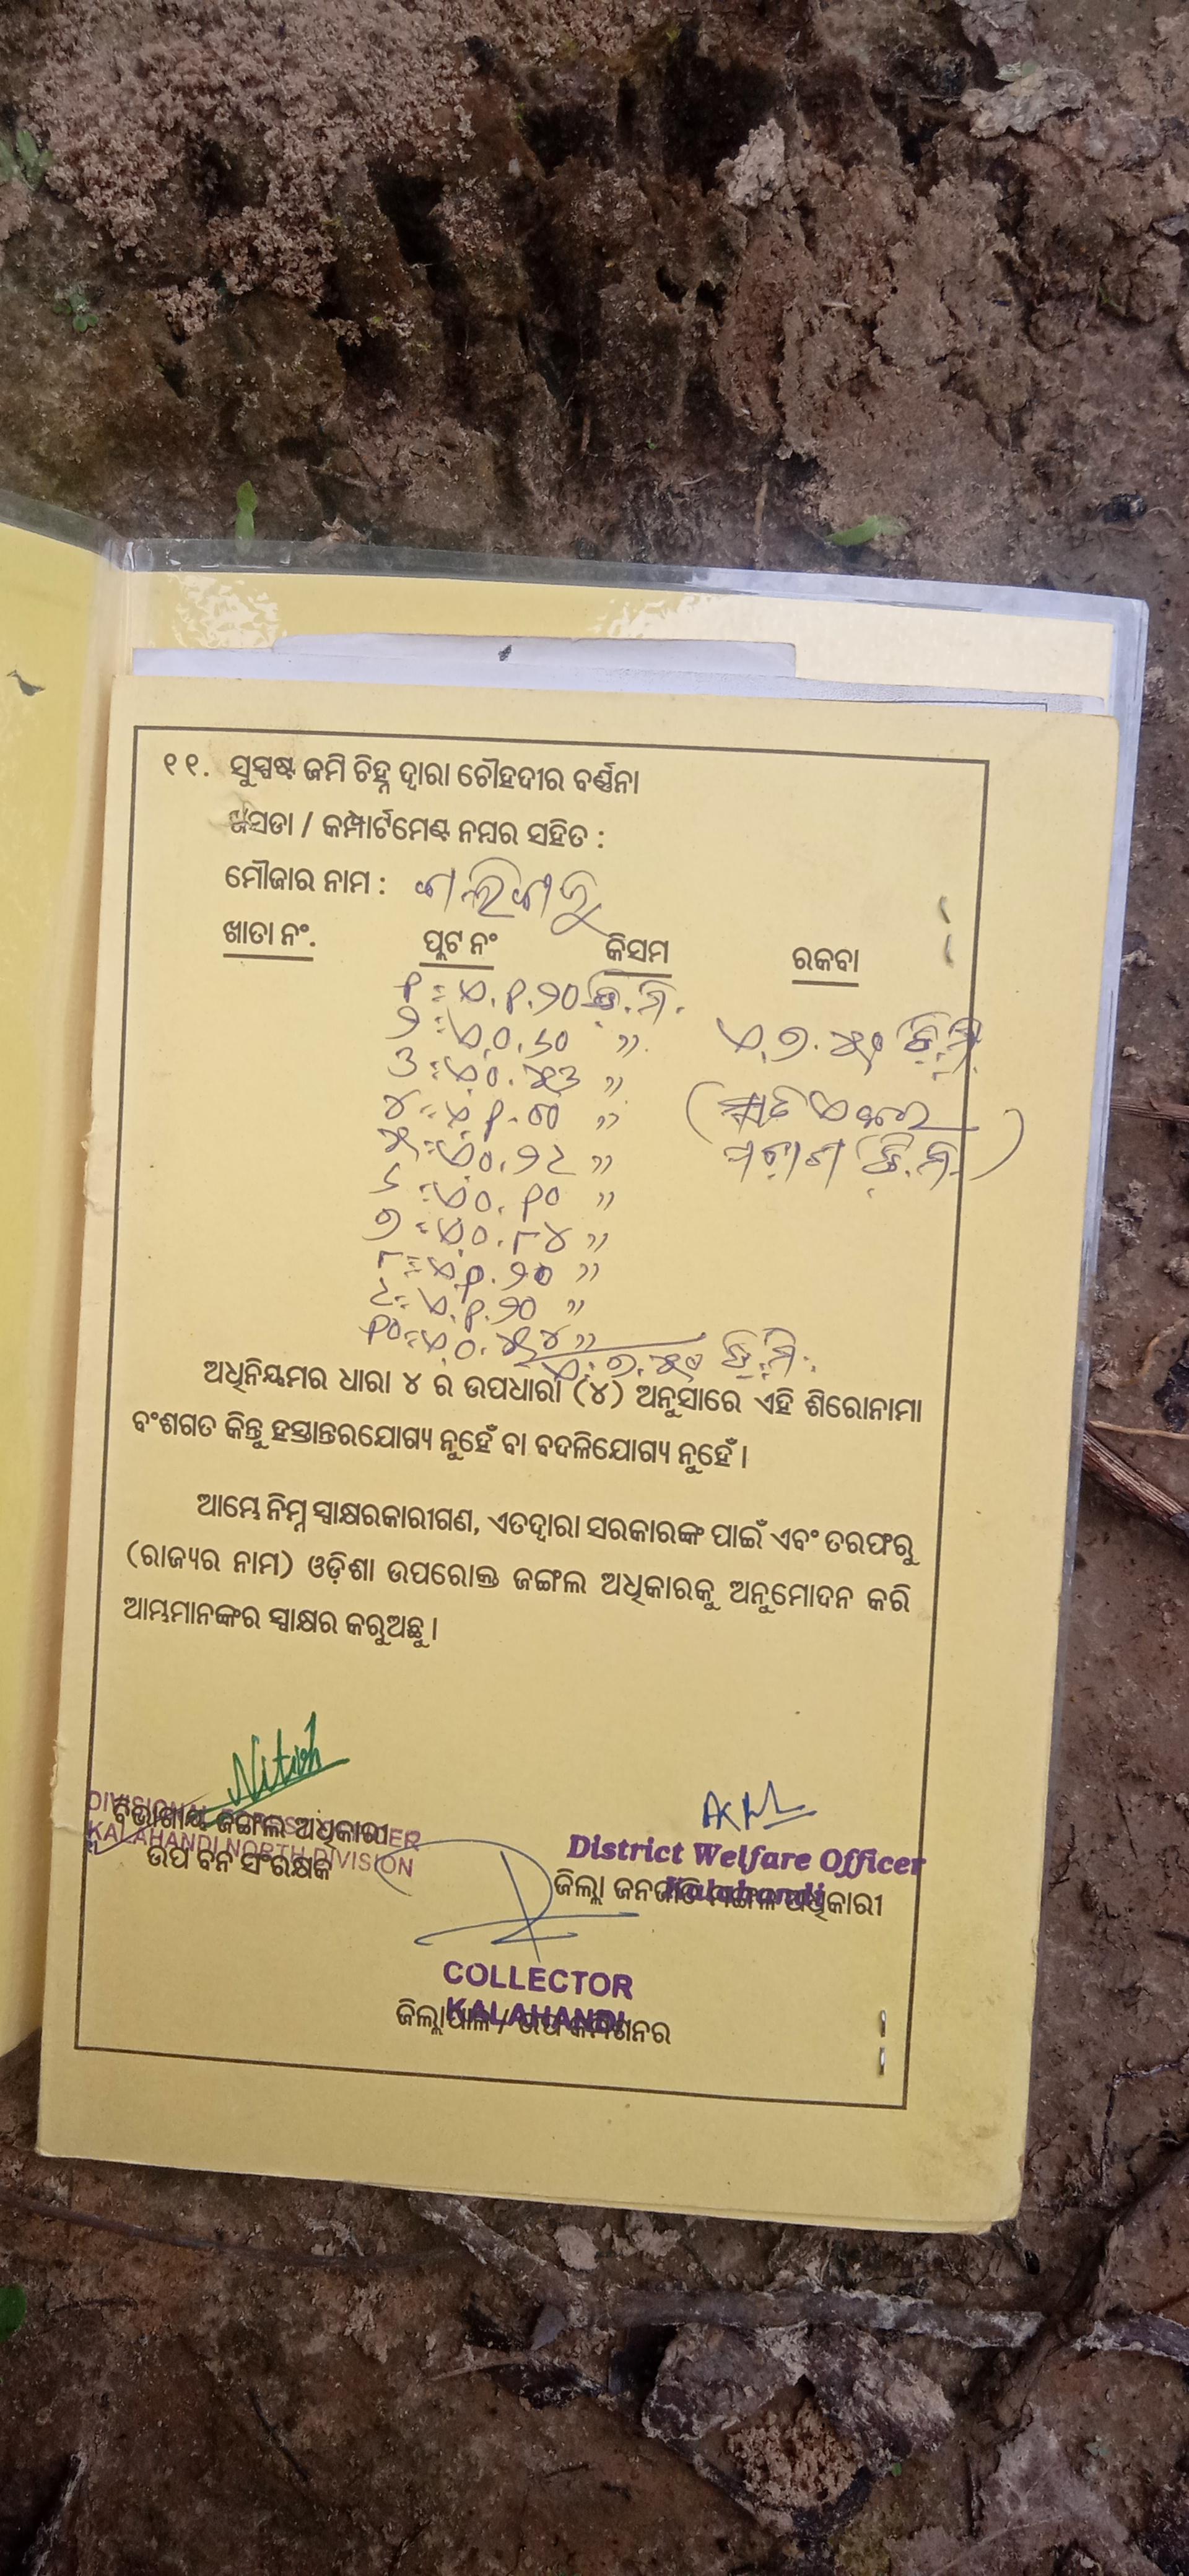 ୧୧. ସୁସ୍ପଷ୍ଟ ଜମି ଚିହ୍ନ ଦ୍ୱାରା ଚୌହଦୀର ବର୍ଣ୍ଣନା
ଖସଡା / କମ୍ପାର୍ଟମେଣ୍ଟ ନମ୍ବର ସହିତ :
ମୌଜାର ନାମ :
ଖାତା ନଂ. ପ୍ଲଟ ନଂ କିସମ ରକବା
୧ = ଏ.୧.୨୦ ଡି.ମି.
୨ = ଏ.୦.୬୦ "
୩ = ଏ.୦.୫୩ "
୪ = ଏ.୧.୦୦ "
୫ = ଏ.୦.୨୯ "
୬ = ଏ.୦.୧୦ "
୭ = ଏ.୦.୮୪ "
୮ = ଏ.୧.୨୦ "
୯ = ଏ.୧.୨୦ "
୧୦ = ଏ.୦.୫୪ "
ଏ.୭.୫୦ ଡି.ମି.
ଏ.୭.୫୦ ଡି.ମି
(ସାତ ଏକର
ପଚାଶ ଡି.ମି.)
ଅଧିନିୟମର ଧାରା ୪ ର ଉପଧାରା (୪) ଅନୁସାରେ ଏହି ଶିରୋନାମା
ବଂଶଗତ କିନ୍ତୁ ହସ୍ତାନ୍ତରଯୋଗ୍ୟ ନୁହେଁ ବା ବଦଳିଯୋଗ୍ୟ ନୁହେଁ ।
ଆମ୍ଭେ ନିମ୍ନ ସ୍ୱାକ୍ଷରକାରୀଗଣ, ଏତଦ୍ଦ୍ୱାରା ସରକାରଙ୍କ ପାଇଁ ଏବଂ ତରଫରୁ
(ରାଜ୍ୟର ନାମ) ଓଡ଼ିଶା ଉପରୋକ୍ତ ଜଙ୍ଗଲ ଅଧିକାରକୁ ଅନୁମୋଦନ କରି
ଆମ୍ଭମାନଙ୍କର ସ୍ୱାକ୍ଷର କରୁଅଛୁ ।
Nitish
DIVISIONAL FOREST OFFICER
KALAHANDI NORTH DIVISION
ବିଭାଗୀୟ ଜଙ୍ଗଲ ଅଧିକାରୀ
ଉପ ବନ ସଂରକ୍ଷକ
District Welfare Officer
Kalahandi
ଜିଲ୍ଲା ଜନଜାତି ମଙ୍ଗଳ ଅଧିକାରୀ
COLLECTOR
KALAHANDI
ଜିଲ୍ଲାପାଳ / ଉପ କମିଶନର